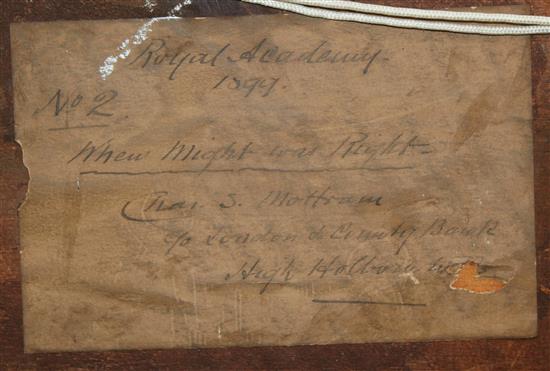 Royal Academy.
1897.
No 2
When Might was Right
Chas. S. Mottram
c/o London & County Bank
High Holborn